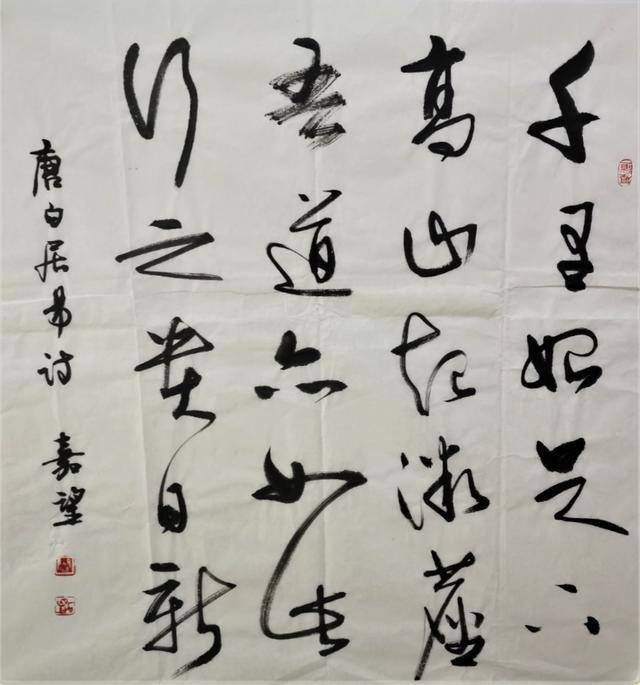 千里始足下
高山起微尘
吾道亦如此
行之贵日新
唐白居易诗 嘉望